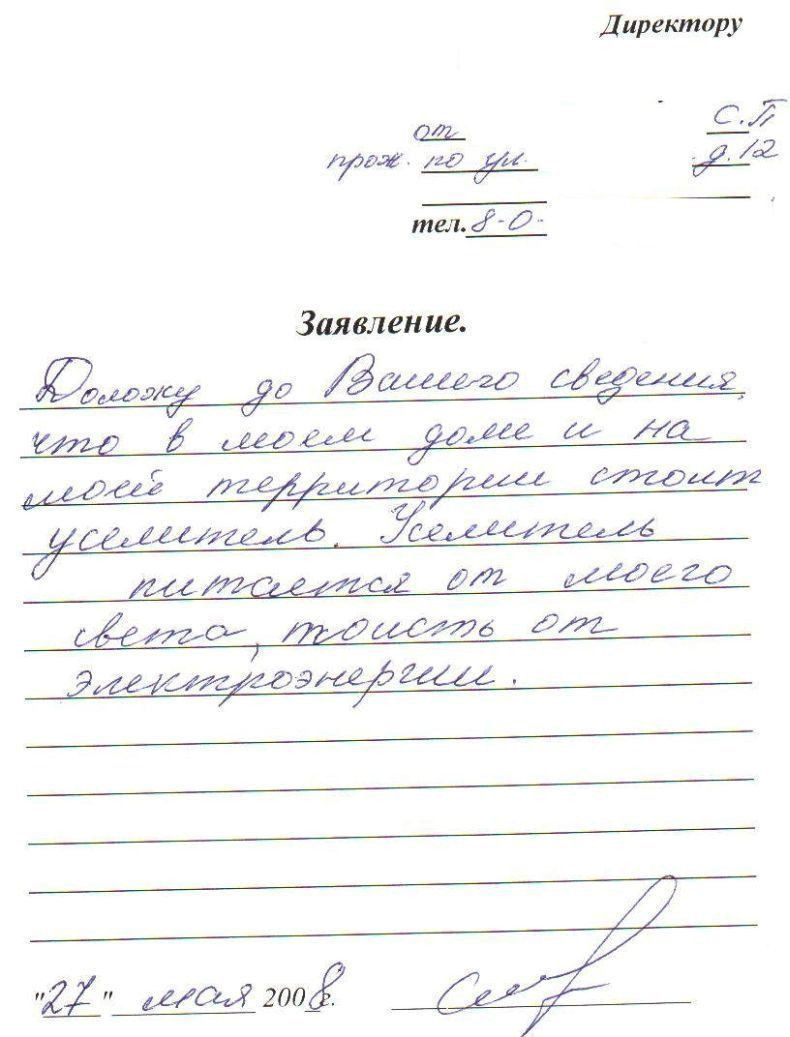 Директору
от С.П
прож. по ул. д.12
тел. 8-0-
Заявление.
Доложу до Вашего сведения,
что в моем доме и на
моей территории стоит
уселитель. Уселитель
питается от моего
света, тоисть от
электроэнергии.
"27" мая 2008 г.